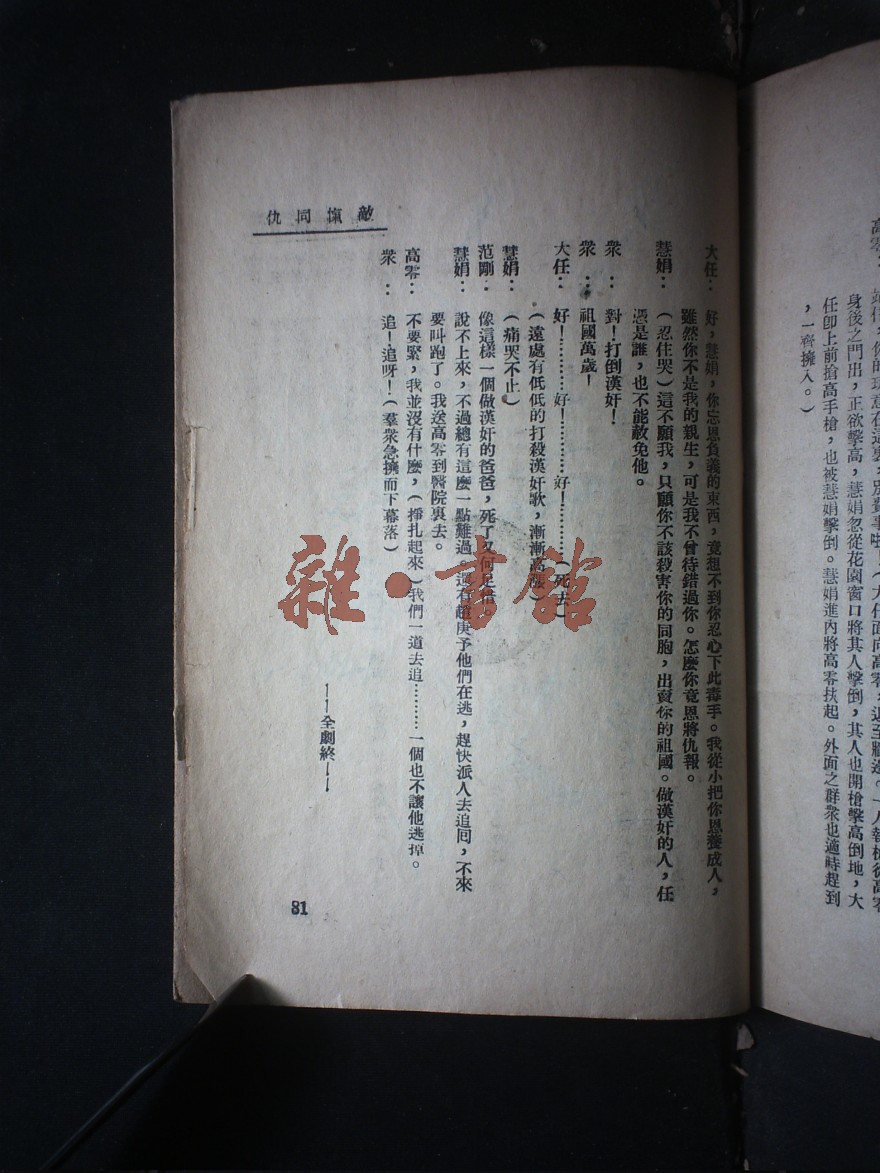 身後之門出，正欲擊高，慧娟忽從花園窗口將其人擊倒，其人也開槍擊高倒地，大
任卽上前搶高手槍，也被慧娟擊倒。慧娟進內將高零扶起。外面之群衆也適時趕到
，一齊擁入。）
敵愾同仇
大任：好，慧娟，你忘恩負義的東西，竟想不到你忍心下此毒手。我從小把你恩養成人，
雖然你不是我的親生，可是我不曾待錯過你。怎麼你竟恩將仇報。
慧娟：（忍住哭）這不願我，只願你不該殺害你的同胞，出賣你的祖國。做漢奸的人，任
憑是誰，也不能赦免他。
衆：對！打倒漢奸！
衆：祖國萬歲！
大任：好！…………好！…………好！…………（死去）
（遠處有低低的打殺漢奸歌，漸漸高漲）
慧娟：（痛哭不止）
范剛：像這樣一個做漢奸的爸爸，死了又何足惜。
慧娟：說不上來，不過總有這麼一點難過，還有趙庚予他們在逃，趕快派人去追回，不來
要叫跑了。我送高零到醫院裏去。
高零：不要緊，我並沒有什麼，（掙扎起來）我們一道去追………一個也不讓他逃掉。
衆：追！追呀！（羣衆急擁而下幕落）
——全劇終——
81
雜·書館